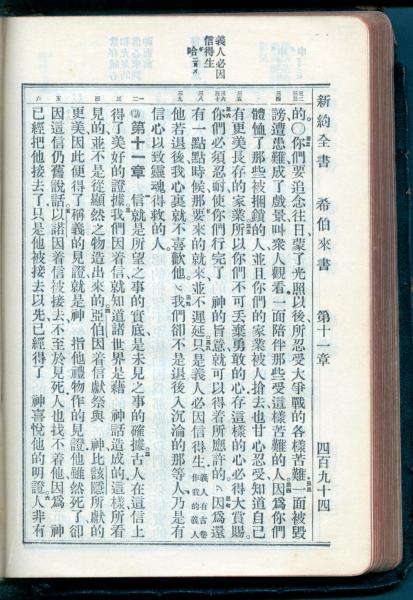 新約全書　希伯來書　第十一章　四百九十四
義人必因
信得生
的〇你們要追念往日蒙了光照以後所忍受大爭戰的各樣苦難、一面被毀
謗遭患難成了戲景呌衆人觀看一面陪伴那些受這樣苦難的人因爲你們
體恤了那些被捆鎖的人並且你們的家業被人搶去也甘心忍受知道自己
有更美長存的家業所以你們不可丟棄勇敢的心存這樣的心必得大賞賜
你們必須忍耐使你們行完了　神的旨意就可以得着所應許的、因爲還
有一點點時候那要來的就來並不遲延只是義人必因信得生、義人有古卷作我的義人
他若退後我心裏就不喜歡他、我們卻不是退後入沉淪的那等人乃是有
信心以致靈魂得救的人。
第十一章　信就是所望之事的實底是未見之事的確據、古人在這信上
得了美好的證據我們因着信就知道諸世界是藉　神話造成的這樣所看
見的並不是從顯然之物造出來的、亞伯因着信獻祭與　神比該隱所獻的
更美因此便得了稱義的見證就是神　指他禮物作的見證他雖然死了卻
因這信仍舊說話以諾因着信被接去不至於見死人也找不着他因爲　神
已經把他接去了只是他被接去以先已經得了　神喜悅他的明證人非有